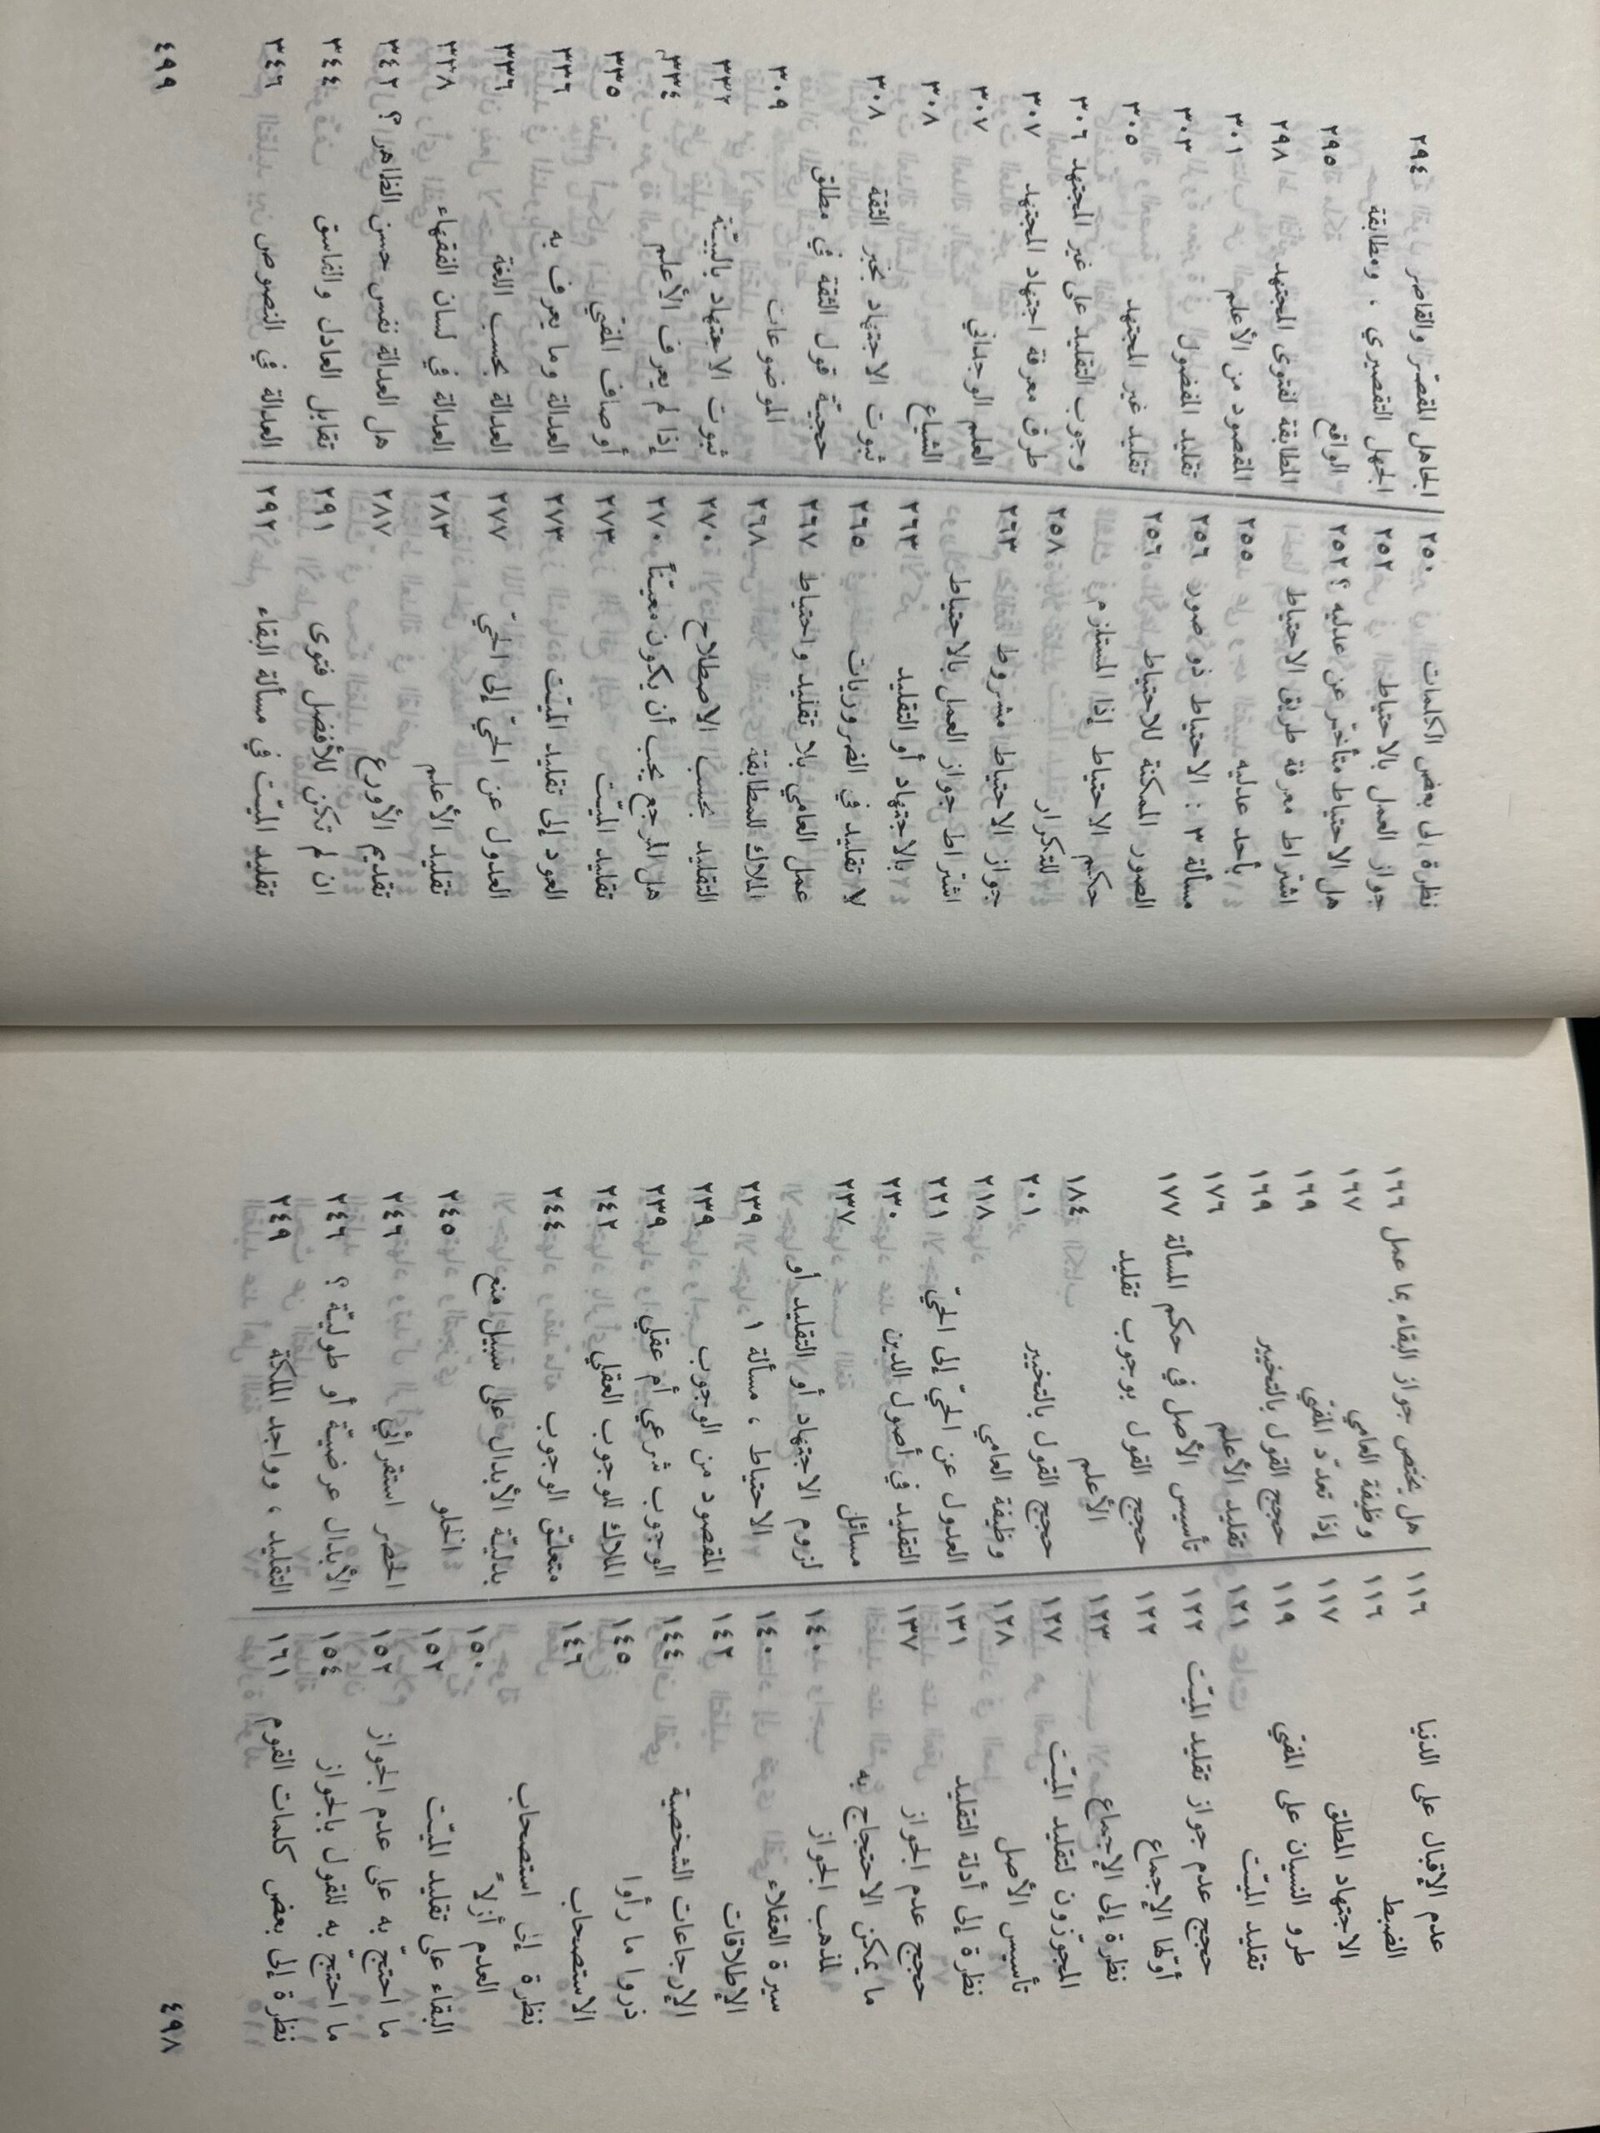 عدم الإقبال على الدنيا ١١٦
الضبط ١١٦
الاجتهاد المطلق ١١٧
طرو النسيان على المفتي ١١٩
تقليد الميّت ١٢١
حجج عدم جواز تقليد الميّت ١٢٢
أولها الإجماع ١٢٢
نظرة إلى الإجماع ١٢٣
المجوّزون لتقليد الميّت ١٢٧
تأسيس الأصل ١٢٨
نظرة إلى أدلة التقليد ١٣١
حجج عدم الجواز ١٣٧
ما يمكن الاحتجاج به
لمذهب الجواز ١٤٠
سيرة العقلاء ١٤٠
الإطلاقات ١٤٢
الإرجاعات الشخصية ١٤٤
ذروا ما رأوا ١٤٥
الاستصحاب ١٤٦
نظرة إلى استصحاب
العدم أزلاً ١٥٠
البقاء على تقليد الميّت ١٥٢
ما احتجّ به على عدم الجواز ١٥٢
ما احتجّ به للقول بالجواز ١٥٤
نظرة إلى بعض كلمات القوم ١٦١
هل يختص جواز البقاء بما عمل ١٦٦
وظيفة العامي ١٦٧
إذا تعدّد المفتي ١٦٩
حجج القول بالتخيير ١٦٩
تقليد الأعلم ١٧٦
تأسيس الأصل في حكم المسألة ١٧٧
حجج القول بوجوب تقليد
الأعلم ١٨٤
حجج القول بالتخيير ٢٠١
وظيفة العامي ٢١٨
العدول عن الحيّ إلى الحيّ ٢٢١
التقليد في أصول الدين ٢٣٠
مسائل ٢٣٧
لزوم الاجتهاد أو التقليد أو
الاحتياط ، مسألة ١ ٢٣٩
المقصود من الوجوب ٢٣٩
الوجوب شرعي أم عقلي ٢٣٩
الملاك للوجوب العقلي ٢٤٢
متعلّق الوجوب ٢٤٤
بدليّة الأبدال على سبيل منع
الخلو ٢٤٥
الحصر استقرائي ٢٤٦
الأبدال عرضيّة أو طوليّة ؟ ٢٤٦
التقليد ، وواجد الملكة ٢٤٩
٤٩٨
نظرة إلى بعض الكلمات ٢٥٠
جواز العمل بالاحتياط ٢٥٢
هل الاحتياط متأخّر عن عدليه ؟ ٢٥٢
اشتراط معرفة طريق الاحتياط
بأحد عدليه ٢٥٥
مسألة ٣ : الاحتياط ذو صور ٢٥٦
الصور الممكنة للاحتياط ٢٥٦
حكم الاحتياط إذا المستلزم
للتكرار ٢٥٨
جواز الاحتياط مشروط ٢٦٣
اشتراط جواز العمل بالاحتياط
بالاجتهاد أو التقليد ٢٦٣
لا تقليد في الضروريات ٢٦٥
عمل العامي بلا تقليد واحتياط ٢٦٧
الملاك للمطابقة ٢٦٨
التقليد بحسب الاصطلاح ٢٧٠
هل المرجع يجب أن يكون معيّناً ٢٧٠
تقليد الميّت ٢٧٣
العود إلى تقليد الميّت ٢٧٣
العدول عن الحيّ إلى الحيّ ٢٧٧
تقليد الأعلم ٢٨٣
تقديم الأورع ٢٨٧
ان لم تكن للأفضل فتوى ٢٩١
تقليد الميّت في مسألة البقاء ٢٩٢
الجاهل المقصّر والقاصر ٢٩٤
الجهل التقصيري ، ومطابقة
الواقع ٢٩٥
المطابقة لفتوى المجتهد ٢٩٨
المقصود من الأعلم ٣٠١
تقليد المفضول ٣٠٣
تقليد غير المجتهد ٣٠٥
وجوب التقليد على غير المجتهد ٣٠٦
طرق معرفة اجتهاد المجتهد ٣٠٧
العلم الوجداني ٣٠٧
الشياع ٣٠٨
ثبوت الاجتهاد بخبر الثقة ٣٠٨
حجيّة قول الثقة في مطلق
الموضوعات ٣٠٩
ثبوت الاجتهاد بالبيّنة ٣٣٢
إذا لم يعرف الأعلم ٣٣٤
أوصاف المفتي ٣٣٥
العدالة وما يعرف به ٣٣٦
العدالة بحسب اللغة ٣٣٦
العدالة في لسان الفقهاء ٣٣٨
هل العدالة نفس حسن الظاهر ؟ ٣٤٢
تقابل العادل والفاسق ٣٤٤
العدالة في النصوص ٣٤٦
٤٩٩